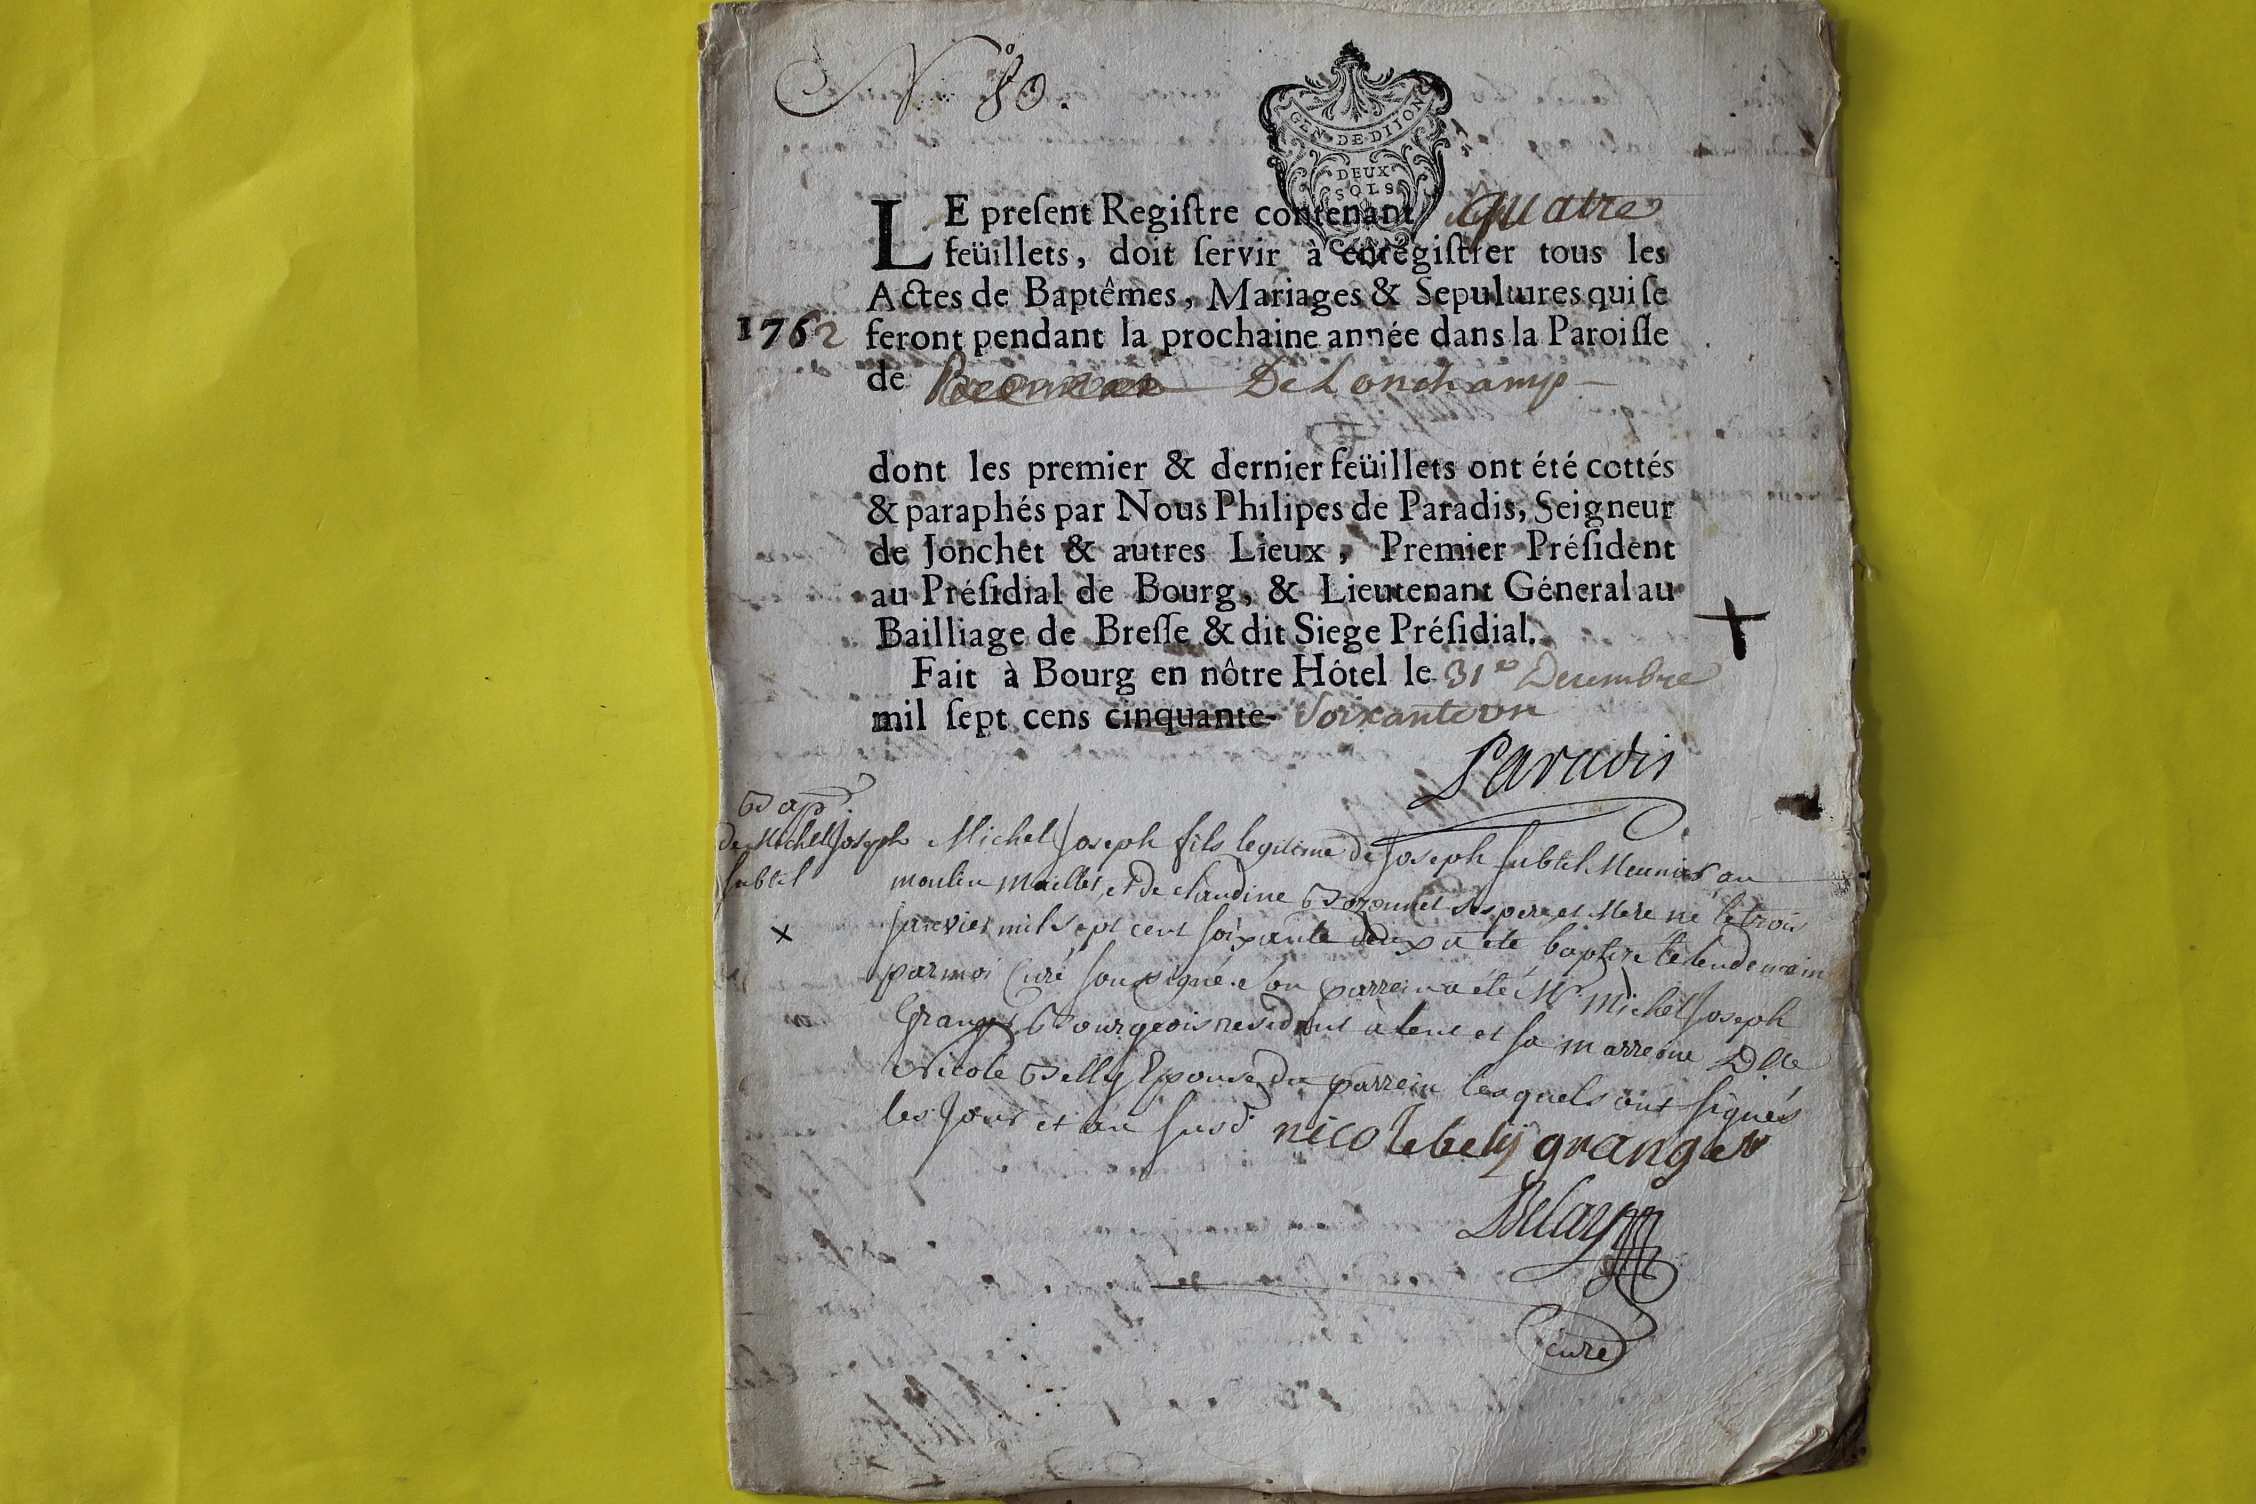 N.º 80.
GEN·DE·DIJON
DEUX
SOLS
LE preſent Regiſtre contenant quatre
feüillets, doit ſervir à enregiſtrer tous les
Actes de Baptêmes, Mariages & Sepultures qui ſe
1762 feront pendant la prochaine année dans la Paroiſſe
de De Lonchamp
dont les premier & dernier feüillets ont été cottés
& paraphés par Nous Philipes de Paradis, Seigneur
de Jonchet & autres Lieux, Premier Préſident
au Préſidial de Bourg, & Lieutenant Géneral au
Bailliage de Breſſe & dit Siege Préſidial.
Fait à Bourg en nôtre Hôtel le 31e Decembre
mil ſept cens cinquante- Soixante un
Paradis
Bap.
de Michel Joseph
Subtil
Michel Joseph fils legitime de Joseph Subtil Meunier au
moulin Maillet, et de Claudine ses pere et Mere né le trois
Janvier mil sept cent soixante deux a été baptizé le lendemain
par moi Curé soussigné. son parrein a été Mr. Michel Joseph
Granger Bourgeois resident à lent et sa marreine Dlle
Nicole Belly Epouse du parrein lesquels ont signés
les Jour et an susd.
nicole bely granger
Delay
curé